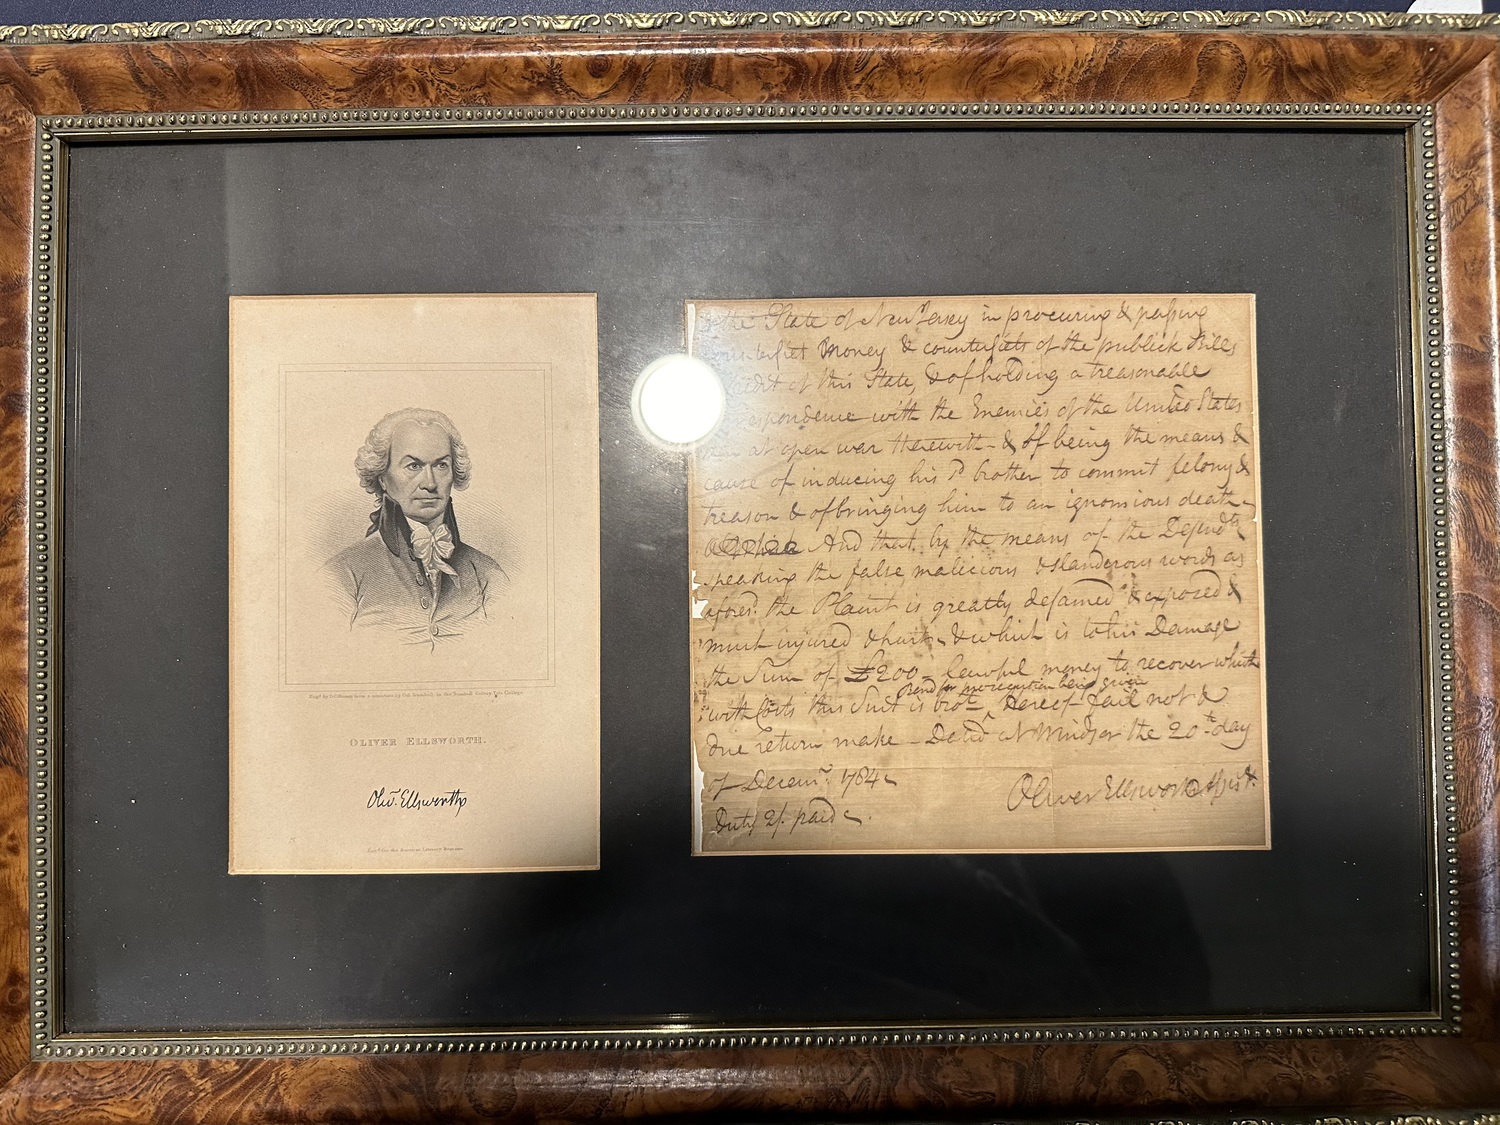 OLIVER ELLSWORTH.
Olivr. Ellsworth
the State of New Jersey in procuring & passing
counterfiet Money & counterfiets of the publick Bills
of this State, & of holding a treasonable
with the Enemies of the United States
at open war therewith - & of being the means &
cause of inducing his sd brother to commit felony &
treason & of bringing him to an ignomious death -
And that by the means of the Defendts
speaking the false, malicious & slanderous words as
aforesd. the Plaint is greatly defamed & exposed &
much injured & hurt, & which is to his Damage
the Sum of £200 - lawful money to recover which
Bond for prosecution being given
with Costs this Suit is brot. ^ Hereof fail not &
due return make - Dated at Windsor the 20th day
of Decemr. 1784 -
Duty 2/. paid -
Oliver Ellsworth Assist.